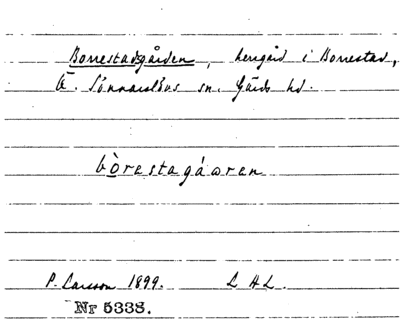 Borrestadsgården, herrgård i Borrestad,
Ö. Sönnarslövs sn. Gärds hd.
bòrestagáwren
P. Larsson 1899. L H L.
Nr 5338.